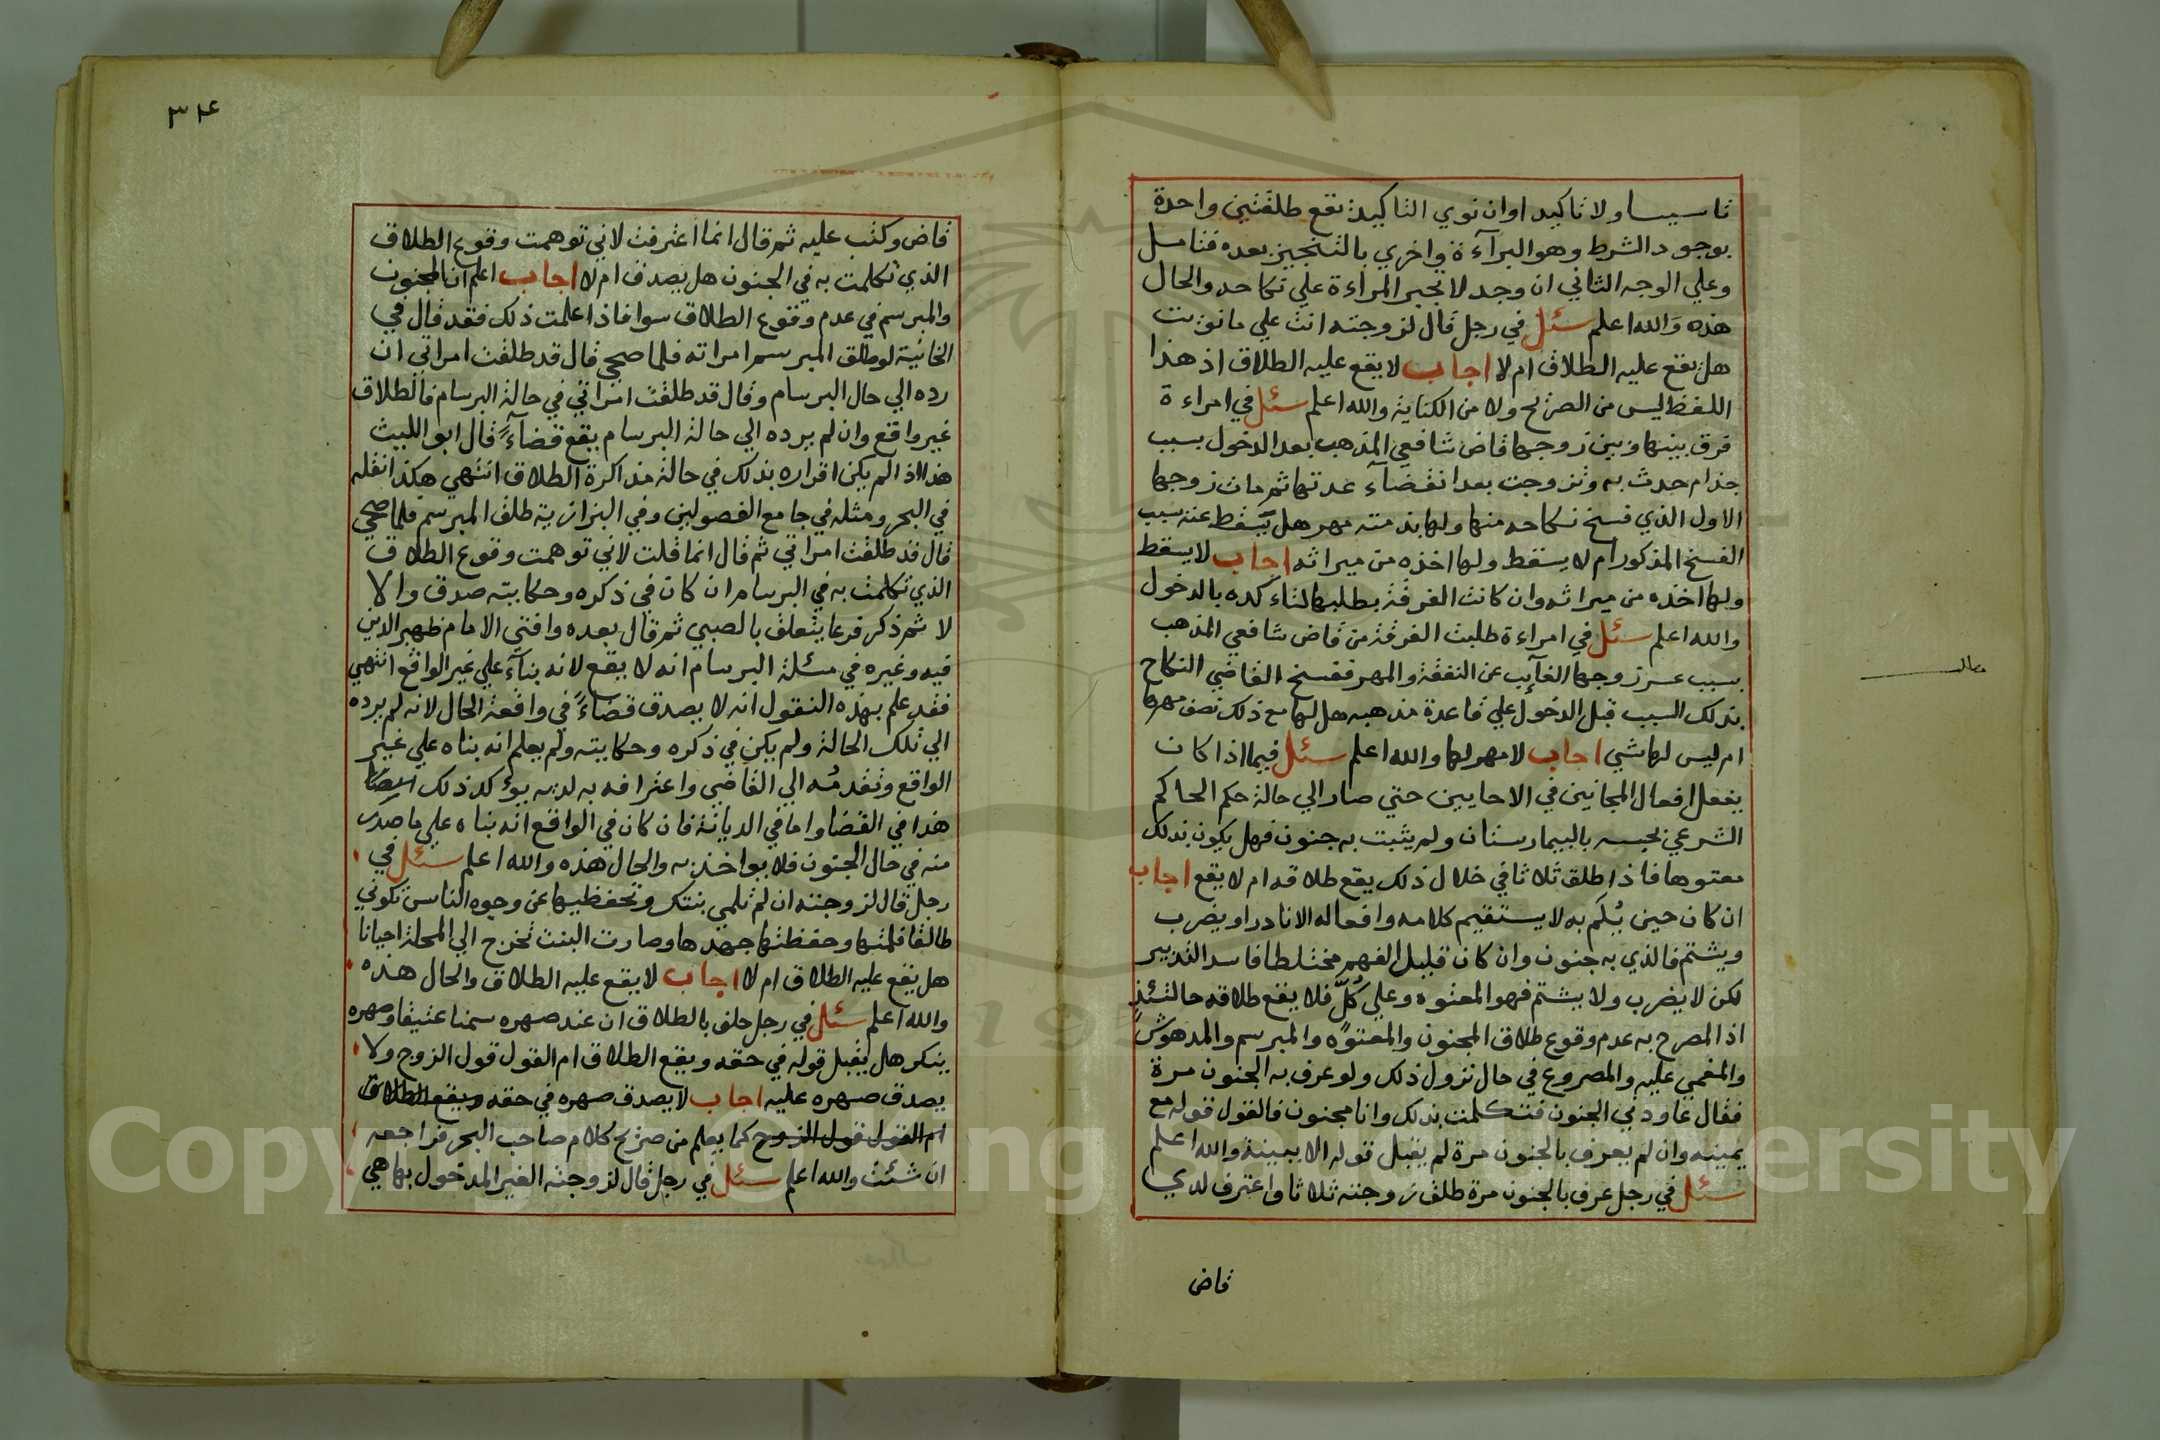 تاسيسا ولا تاكيدا وان نوي التاكيد يقع طلقتين واحدة
بوجود الشرط وهو البرآءة واخري بالتنجيز بعده فتامل
وعلي الوجه الثاني ان وجد لا تجبر المراءة علي نكاحه والحال
هذه والله اعلم سئل في رجل قال لزوجته انت علي مانويت
هل يقع عليه الطلاق ام لا اجاب لا يقع عليه الطلاق اذ هذا
اللفظ ليس من الصريح ولا من الكناية والله اعلم سئل في امراءة
فرق بينها وبين زوجها قاض شافعي المذهب بعد الدخول بسبب
جذام حدث به وتزوجت بعد انقضآء عدتها ثم مات زوجها
الاول الذي فسخ نكاحه منها ولها بذمته مهر هل يسقط عنه بسبب
الفسخ المذكور ام لا يسقط ولها اخذه من ميراثه اجاب لا يسقط
ولها اخذه من ميراثه وان كانت الفرقة بطلبها لتاءكده بالدخول
والله اعلم سئل في امراءة طلبت الفرقة من قاض شافعي المذهب
بسبب عسر زوجها الغآيب عن النفقة والمهر ففسخ القاضي النكاح
بذلك السبب قبل الدخول علي قاعدة مذهبه هل لها مع ذلك نصف مهرها
ام ليس لها شي اجاب لا مهر لها والله اعلم سئل فيما اذا كان
يفعل افعال المجانين في الاحايين حتي صار الي حالة حكم الحاكم
الشرعي بحبسه بالبيمارستان ولم يثبت به جنون فهل يكون بذلك
معتوها فاذا طلق ثلاثا في خلال ذلك يقع طلاقه ام لا يقع اجاب
ان كان حين يُلَم به لا يستقيم كلامه وافعاله الا نادرا ويضرب
ويشتم فالذي به جنون وان كان قليل الفهم مختلطا فاسد التدبير
لكن لا يضرب ولا يشتم فهو المعتوه وعلي كُلٍّ فلا يقع طلاقه حالتئذٍ
اذ المصرح به عدم وقوع طلاق المجنون والمعتوه والمبرسم والمدهوش
والمغمي عليه والمصروع في حال نزول ذلك ولو عرف به الجنون مرة
فقال عاودني الجنون فتكلمت بذلك وانا مجنون فالقول قوله مع
يمينه وان لم يعرف بالجنون مرة لم يقبل قوله الا ببينة والله اعلم
سئل في رجل عرف بالجنون مرة طلق زوجته ثلاثا واعترف لدي
قاض
٣٤
قاض وكتب عليه ثم قال انما اعترفت لاني توهمت وقوع الطلاق
الذي تكلمت به في الجنون هل يصدق ام لا اجاب اعلم ان المجنون
والمبرسم في عدم وقوع الطلاق سوا فاذا علمت ذلك فقد قال في
الخانية لو طلق المبرسم امراته فلما صحي قال قد طلقت امراتي ان
رده الي حال البرسام وقال قد طلقت امراتي في حالة البرسام فالطلاق
غير واقع وان لم يرده الي حالة البرسام يقع قضآءً قال ابو الليث
هذا اذا لم يكن اقراره بذلك في حالة مذاكرة الطلاق انتهي هكذا نقله
في البحر ومثله في جامع الفصولين وفي البزازية طلق المبرسم فلما صحي
قال قد طلقت امراتي ثم قال انما قلت لاني توهمت وقوع الطلاق
الذي تكلمت به في البرسام ان كان في ذكره وحكايته صدق والا
لا ثم ذكر فرعا يتعلق بالصبي ثم قال بعده وافتي الامام ظهير الدين
فيه وغيره في مسئلة البرسام انه لا يقع لانه بناءً علي غير الواقع انتهي
فقد علم بهذه النقول انه لا يصدق قضاءً في واقعة الحال لانه لم يرده
الي تلك الحالة ولم يكن في ذكره وحكايته ولم يعلم انه بناه علي غير
الواقع وتقدمُه الي القاضي واعترافه به لديه يوءكد ذلك ايضا
هذا في القضا واما في الديانة فان كان في الواقع انه بناه علي ما صدر
منه في حال الجنون فلا يواخذ به والحال هذه والله اعلم سئل في
رجل قال لزوجته ان لم تلمي بنتك وتحفظيها عن وجوه الناس تكوني
طالقا فلمتها وحفظتها جهدها وصارت البنت تخرج الي المحلة احيانا
هل يقع عليه الطلاق ام لا اجاب لا يقع عليه الطلاق والحال هذه
والله اعلم سئل في رجل حلف بالطلاق ان عند صهره سمنا عتيقا وصهره
ينكر هل يقبل قوله في حقه ويقع الطلاق ام القول قول الزوج ولا
يصدق صهره عليه اجاب لا يصدق صهره في حقه ويقع الطلاق
ام القول قول الزوج كما يعلم من صريح كلام صاحب البحر فراجعه
ان شئت والله اعلم سئل في رجل قال لزوجته الغير المدخول بها هي
Copyright © King Saud University